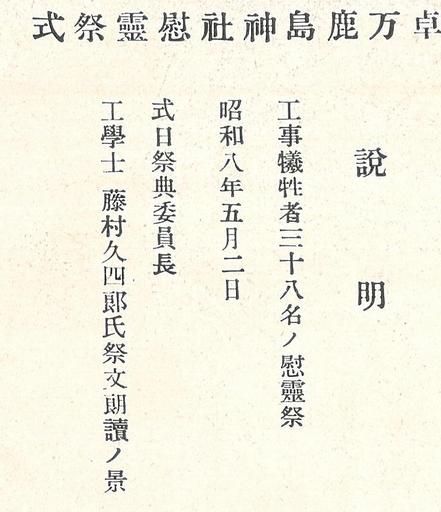 卓万鹿島神社慰靈祭式
說明
工事犧牲者三十八名ノ慰靈祭
昭和八年五月二日
式日祭典委員長
工學士 藤村久四郎氏祭文朗讀ノ景